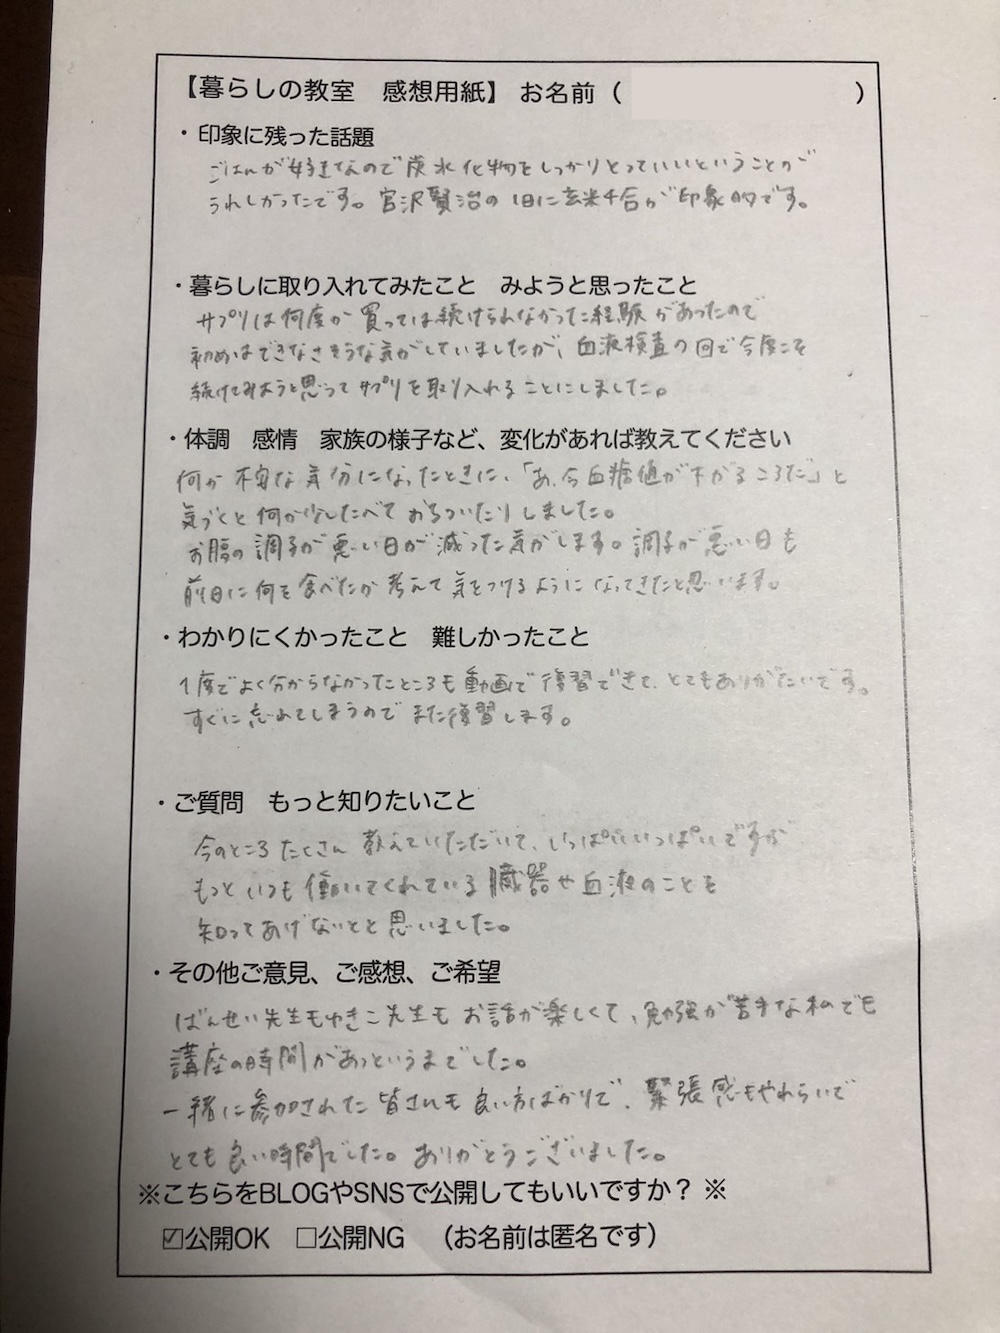 【暮らしの教室　感想用紙】 お名前（　　　　）
・印象に残った話題
ごはんが好きなので炭水化物をしっかりとっていいということが
うれしかったです。宮沢賢治の1日に玄米4合が印象的です。
・暮らしに取り入れてみたこと　みようと思ったこと
サプリは何度か買っては続けられなかった経験があったので
初めはできなさそうな気がしていましたが、血液検査の回で今度こそ
続けてみようと思ってサプリを取り入れることにしました。
・体調　感情　家族の様子など、変化があれば教えてください
何か不安な気分になったときに、「あ、今血糖値が下がるころだ」と
気づくと何か少したべておちついたりしました。
お腹の調子が悪い日が減った気がします。調子が悪い日も
前日に何を食べたか考えて気をつけるようになってきたと思います。
・わかりにくかったこと　難しかったこと
1度でよく分からなかったところも動画で復習できて、とてもありがたいです。
すぐに忘れてしまうのでまた復習します。
・ご質問　もっと知りたいこと
今のところたくさん教えていただいて、いっぱいいっぱいですが
もっといつも働いてくれている臓器や血液のことを
知ってあげないとと思いました。
・その他ご意見、ご感想、ご希望
ばんせい先生もゆきこ先生もお話が楽しくて、勉強が苦手な私でも
講座の時間があっというまでした。
一緒に参加された皆さんも良い方ばかりで、緊張感もやわらいで
とても良い時間でした。ありがとうございました。
※こちらをBLOGやSNSで公開してもいいですか？ ※
☑公開OK　□公開NG　（お名前は匿名です）